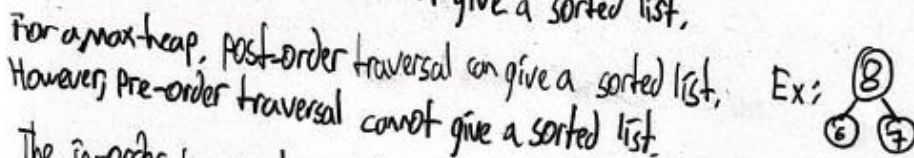 give a sorted list.
For a max-heap, post-order traversal can give a sorted list. Ex: 8
However, pre-order traversal cannot give a sorted list. 6 7
The in-order